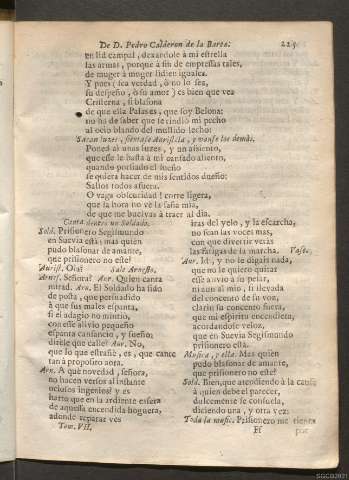 De D. Pedro Calderon de la Barca. 225
en lid campal, dexandole à mi estrella
las armas, porque à fin de empressas tales,
de muger à muger lidien iguales.
Y pues (sea verdad, ò no lo sea,
su despeño, ò su amor) es bien que vea
Cristerna, si blasona
de que ella Palas es, que soy Belona:
no ha de saber que se rindiò mi pecho
al ocio blando del mullido lecho:
Sacan luzes, sientase Auristela, y vanse los demàs.
Poned aì unas luzes, y un assiento,
que esse le basta à mi cansado aliento,
quando porfiado el sueño
se quiera hacer de mis sentidos dueño:
Salios todos afuera.
O vaga obscuridad! corre ligera,
que la hora no vè la saña mia,
de que me buelvas à traer al dia.
Canta dentro un Soldado.
Sold. Prisionero Segismundo
en Suevia està; mas quien
pudo blasonar de amante,
que prisionero no estè?
Aurist. Ola? Sale Arnesto.
Arnest. Señora? Aur. Quien canta
mirad. Arn. El Soldado ha sido
de posta, que persuadido
à que sus males espanta,
si el adagio no mintiò,
con esse alivio pequeño
espanta cansancio, y sueño:
dirèle que calle? Aur. No,
que lo que estrañè, es, que cante
tan à proposito aora.
Arn. A què novedad, señora,
no hacen versos al instante
ociosos ingenios? y es
harto que en la ardiente esfera
de aquella encendida hoguera,
adonde reparar ves
Tom. VII.
iras del yelo, y la escarcha,
no sean las voces mas,
con que divertir veràs
las fatigas de la marcha. Vase.
Aur. Id, y no le digais nada,
que no le quiero quitar
esse alivio à su pesar,
ni aun al mio, si llevada
del concento de su voz,
clarin su concento suena,
que mi espiritu encendiera,
acordandose veloz,
que en Suevia Segismundo
prisionero està.
Musica, y ella. Mas quien
pudo blasonar de amante,
que prisionero no estè?
Sold. Bien, que atendiendo à la causa
à quien debe el parecer,
dulcemente se consuela,
diciendo una, y otra vez:
Toda la music. Prisionero me tienen
Ff
SGCB2021